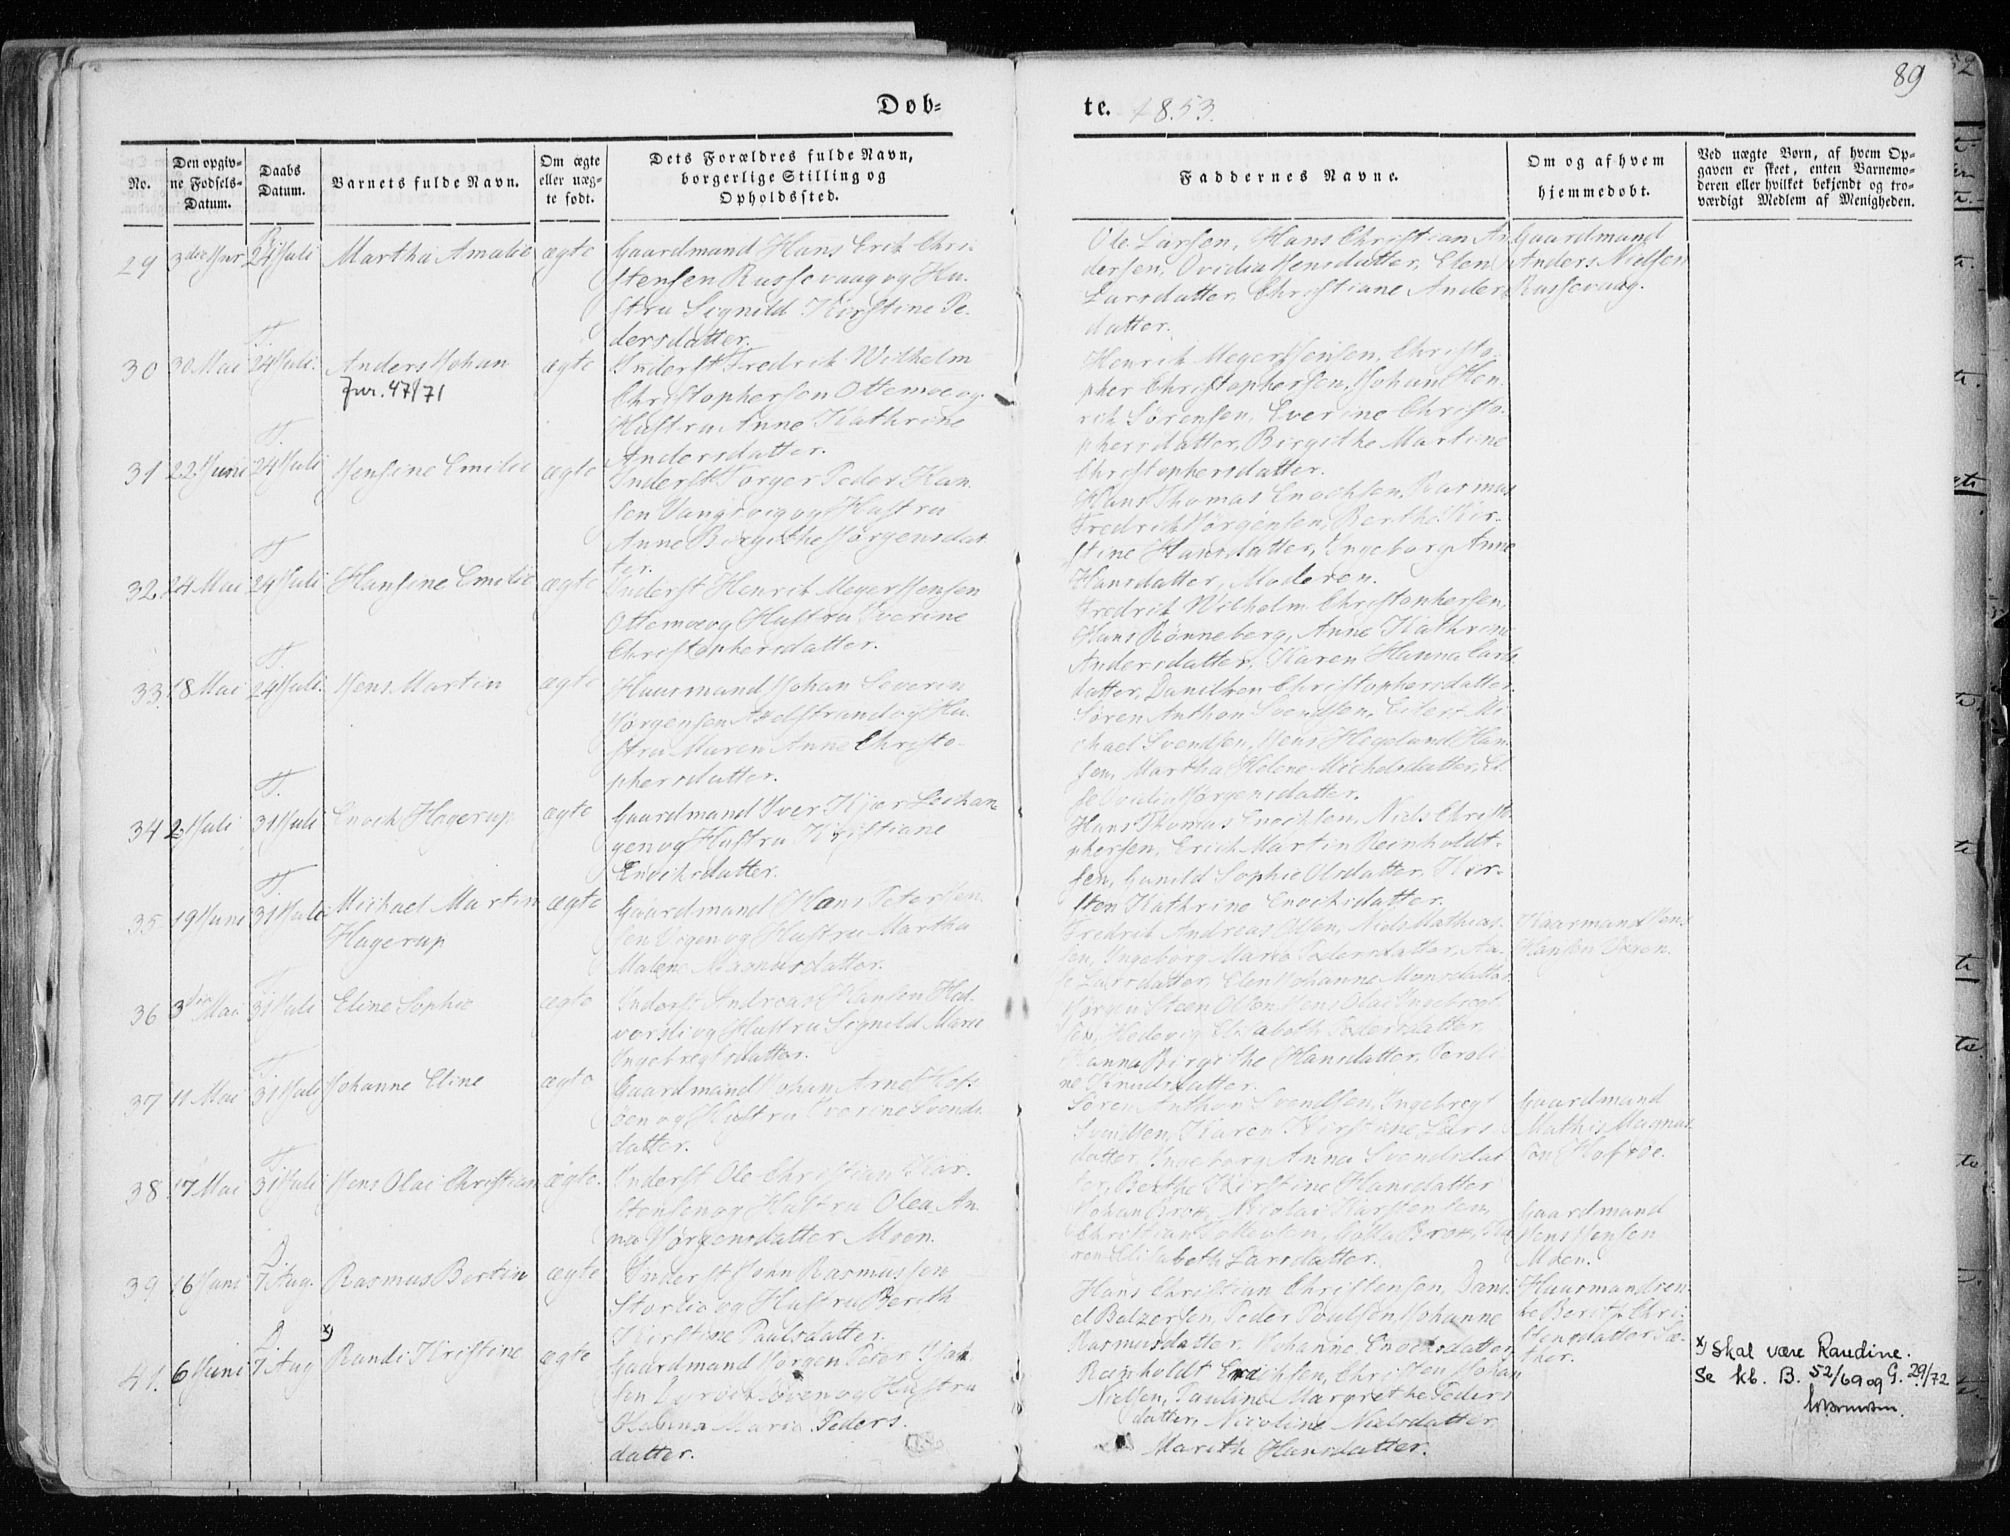 89
Døb-
te. 1853.
No.
Den opgiv-
ne Fødsels-
Datum.
Daabs
Datum.
Barnets fulde Navn.
Om ægte
eller uæg-
te født.
Dets Forældres fulde Navn,
borgerlige Stilling og
Opholdssted.
Faddernes Navne.
Om og af hvem
hjemmedøbt.
Ved uægte Børn, af hvem Op-
gaven er skeet, enten Barnemo-
deren eller hvilket bekjendt og tro-
værdigt Medlem af Menigheden.
29 24 Juli Martha Amalie ægte
Gaardmand Hans Erik Chri-
stensen Russevaag og Hu-
stru Signild Kirstine Pe-
dersdatter.
Ole Larsen, Hans Christian An-
dersen, Ovidia Jensdatter, Elen
Larsdatter, Christiane Anders
datter.
Gaardmand
Anders Nielsen
Russevaag.
30 30 Mai 24 Juli. Anders Johan ægte
Jvr. 47/71
Inderst Fredrik Wilhelm
Christophersen Ottemoe og
Hustru Anne Kathrine
Andersdatter.
Henrik Meyer Jensen, Christo-
pher Christophersen, Johan Hen-
rik Sørensen, Everine Christo-
phersdatter, Birgithe Martine
Christophersdatter.
31 22 Juni 24 Juli Jensine Emilie ægte
Inderst Torger Peder Han-
sen Vangsvig og Hustru
Anne Birgithe Jørgensdat-
ter.
Hans Thomas Enochsen, Rasmus
Fredrik Jørgensen, Berthe Kir-
stine Hansdatter, Ingeborg Anne
Hansdatter, Moderen.
32. 24 Mai 24 Juli Hansine Emilie ægte
Inderst Henrik Meyer Jensen
Ottemoe og Hustru Iverine
Christophersdatter.
Fredrik Wilhelm Christophersen,
Hans Rønneberg, Anne Kathrine
Andersdatter, Karen Hanna Lars-
datter, Christophersdatter.
33. 18 Mai 24 Juli. Jens Martin ægte
Huusmand Johan Severin
Jørgensen Axelstrand og Hu-
stru Maren Anne Christo-
phersdatter.
Søren Anthon Svendsen, Eilert Mi-
chael Svendsen, Jens Hegelund Han-
sen, Martha Helene Michelsdatter, El-
se Ovidia Jørgensdatter.
34 2 Juli 31 Juli Enoch Hagerup ægte
Gaardmand Iver Kjær Leikan-
gen og Hustru Kristiane
Enochsdatter.
Hans Thomas Enochsen, Niels Christo-
phersen, Erich Martin Reinholdt-
sen, Gunild Sophie Olsdatter, Kir-
sten Kathrine Enochsdatter.
35 19 Juni 31 Juli Michael Martin ægte
Hagerup
Gaardmand Hans Peter Jen-
sen og Hustru Martha
Malene Rasmusdatter.
Fredrik Andreas Olsen, Niels Mathias-
sen, Ingeborg Maria Pedersdatter, Aa-
se Larsdatter, Elen Johanne Monsdatter
Huusmand Jens
Hansen
36 3die Mai 31 Juli Eline Sophie ægte
Inderst Andreas Hansen Hal-
vorsli og Hustru Signild Marie
Ingebregtsdatter.
Jørgen Steen Olsen, Jens Olai Ingebregt-
sen, Hedevig Elisabeth Pedersdatter,
Hanna Birgithe Hansdatter, Peroli-
ne Knudsdatter.
37 11 Mai 31 Juli Johanne Eline ægte
Gaardmand Johan Arne Hof-
søen og Hustru Iverine Svends-
datter.
Søren Anthon Svendsen, Ingebregt
Svendsen, Karen Kirstine Lars-
datter, Ingeborg Anna Svendsdat-
ter, Berthe Kirstine Hansdatter
Gaardmand
Mathis Magnus-
sen Hofsøe.
38 17 Mai 31 Juli Jens Olai Christian ægte.
Inderst Ole Christian Kar-
stensen og Hustru Olea An-
na Jørgensdatter Moen.
Johan Brox, Nicolai Karstensen,
Christian Brox,
Elisabeth Larsdatter.
Gaardmand
Jens Jensen
Moen.
39 16 Juni 7 Aug. Rasmus Bertin ægte
Inderst John Rasmussen
Storlie og Hustru Berith
Kirstine Paulsdatter.
Hans Christian Christensen, Dani-
el Balzersen, Peder Poulsen, Johanne
Rasmusdatter, Johanne Enochsdatter
Huusmandsen-
ke Berith Chri-
stensdatter Sæ-
ther.
41. 6 Juni 7 Aug x) Randi Kristine ægte
Gaardmand Jørgen Peter
og Hustru
Hanna Maria Peders-
datter.
Reinholdt Erichsen, Christen Johan
Nielsen, Pauline Margrethe Peders-
datter, Nicoline Nielsdatter,
Marith Hansdatter.
x) skal være Raudine.
Se kb. B. 52/69 og G. 29/72